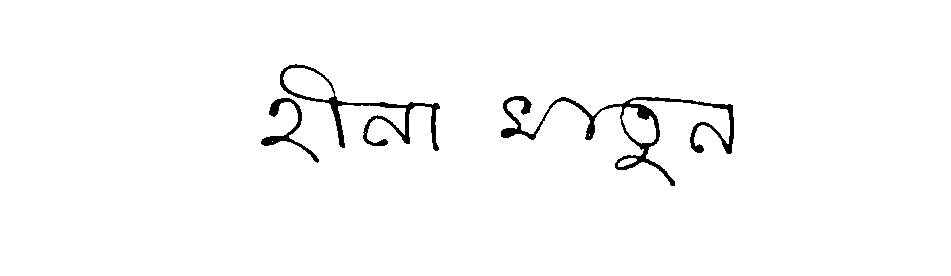 হীনা খাতুন